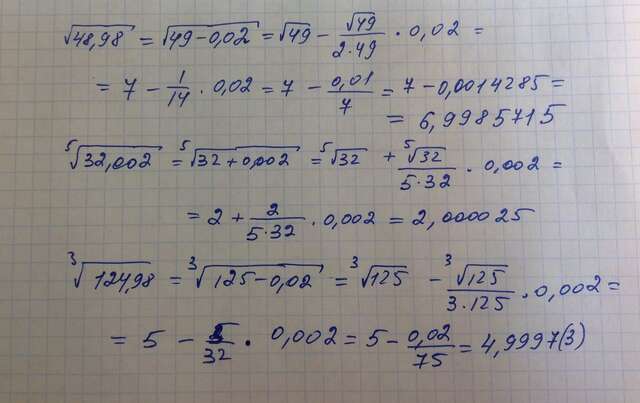 √48,98 = √49-0,02 = √49 - √49/2·49 · 0,02 =
= 7 - 1/14 · 0,02 = 7 - 0,01/7 = 7 - 0,0014285 =
= 6,9985715
⁵√32,002 = ⁵√32+0,002 = ⁵√32 + ⁵√32/5·32 · 0,002 =
= 2 + 2/5·32 · 0,002 = 2,000025
³√124,98 = ³√125-0,02 = ³√125 - ³√125/3·125 · 0,002 =
= 5 - 5/32 · 0,002 = 5 - 0,02/75 = 4,9997(3)